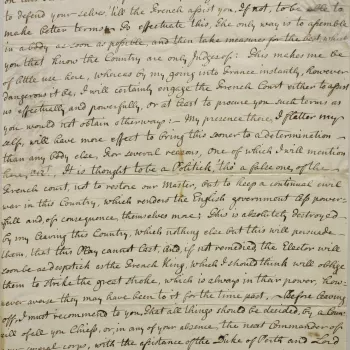 to Defend your-selves, 'till the French assist you, If not, to be able to
make better terms. To effectuate this, the only way is to assemble
in a body as soon as possible, and then take measures for the best, which
you that know the Country are only Judges of; This makes me be
of little use here, whereas by my going into France instantly, however
dangerous it be, I will certainly engage the French Court either to assist
us effectually and powerfully, or at least to procure you such terms as
you would not obtain otherways: My presence there, I flatter my
self, will have more effect to bring this sooner to a determination
than any body else, For several reasons, one of which I will mention
here, viz. It is thought to be a Politick, tho' a false one, of the
French court, not to restore our Master, but to keep a continual civil
war in this Country, which renders the English government less power-
full and, of consequence, themselves more; This is absolutely destroyed
by my leaving this Country, which nothing else but this will persuade
them, that this Play cannot last. And, if not remedied the Elector will
soon be as despotick as the French King, which I should think will oblige
them to strike the great stroke, which is always in their power, How-
never averse they may have been to it for the time past, Before leaving
off, I must recommend to you, That all things should be decided, by a Coun-
cill of all you Chiefs, or, in any of your absence, the next Commander of
several corps, with the assistance of the Duke of Perth and Lord